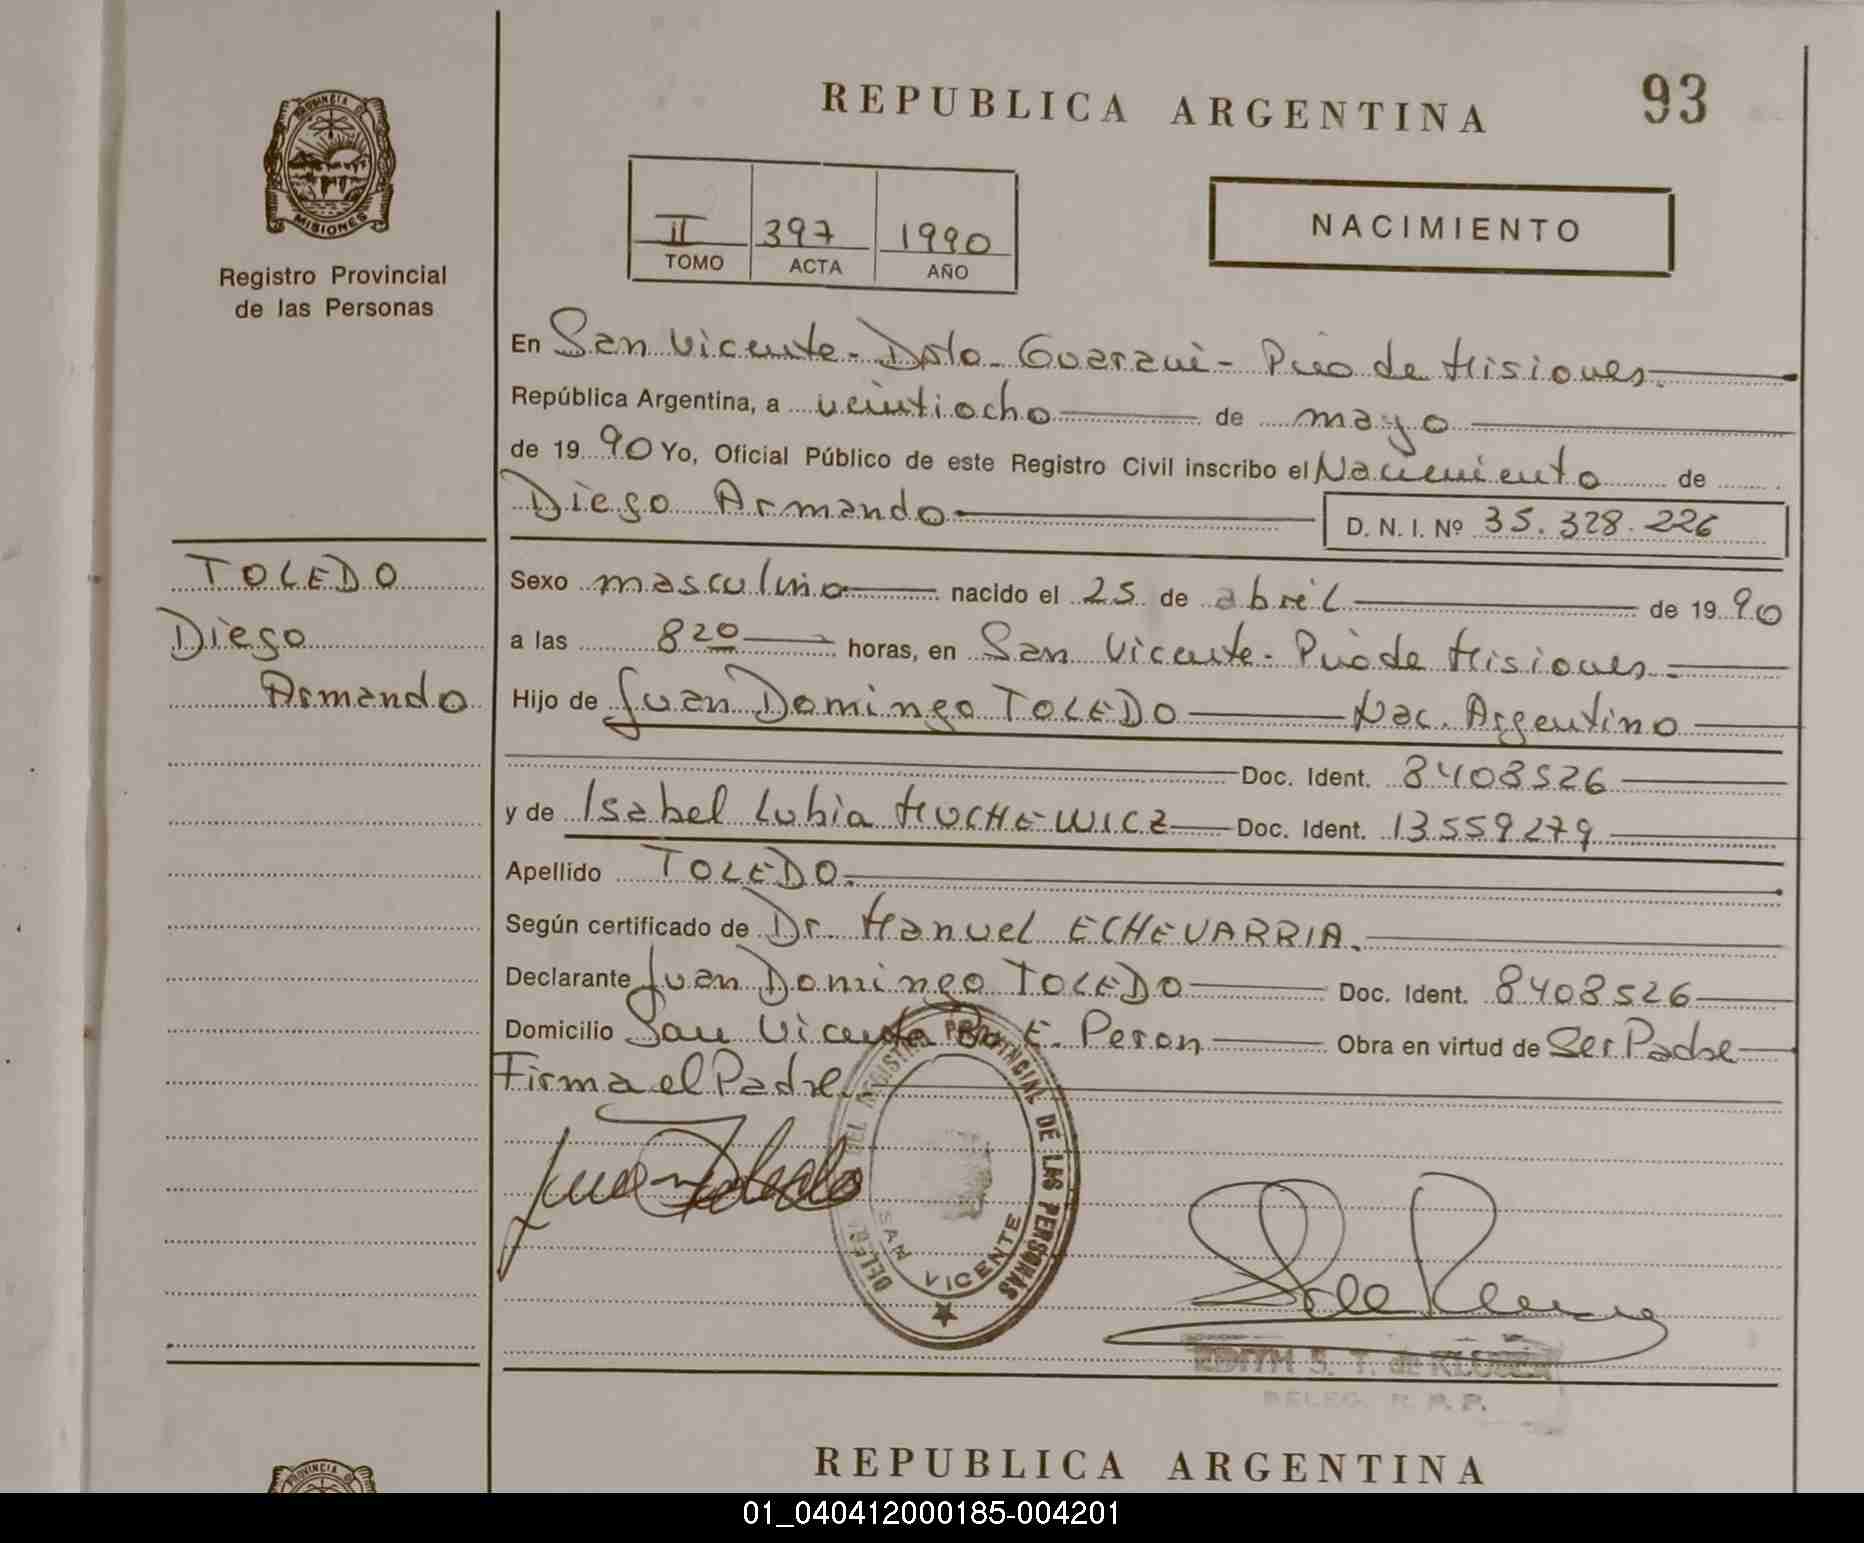 PROVINCIA DE
MISIONES
Registro Provincial
de las Personas
REPUBLICA ARGENTINA
93
II 397 1990
TOMO ACTA AÑO
NACIMIENTO
En San Vicente - Dpto - Guaraní - Pcia de Misiones.
República Argentina, a veintiocho de mayo
de 19 90 Yo, Oficial Público de este Registro Civil inscribo el Nacimiento de
Diego Armando D. N. I. Nº 35.328.226
TOLEDO
Diego
Armando
Sexo masculino nacido el 25 de abril de 19 90
a las 8 20 horas, en San Vicente - Pcia de Misiones -
Hijo de Juan Domingo TOLEDO Nac. Argentino
Doc. Ident. 8408526
y de Isabel Lubia MUCHEWICZ Doc. Ident. 13559279
Apellido TOLEDO.
Según certificado de Dr. Manuel ECHEVARRIA.
Declarante Juan Domingo TOLEDO Doc. Ident. 8408526
Domicilio San Vicente Bo E. Peron Obra en virtud de Ser Padre
Firma el Padre.
Juan Toledo
DEL REGISTRO PROVINCIAL DE LAS PERSONAS
SAN VICENTE
EDITH S. T. de
DELEG. R. P. P.
PROVINCIA D
REPUBLICA ARGENTINA
01_040412000185-004201